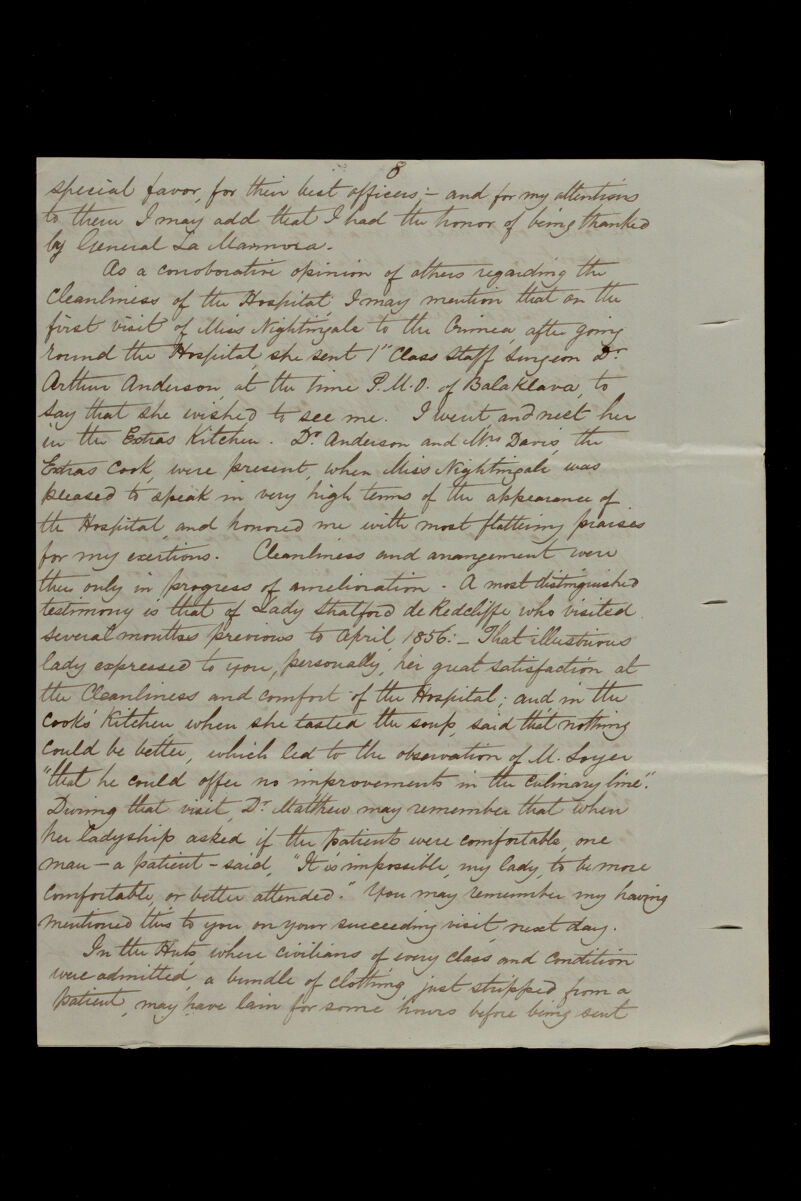 8
special favor, for their best officers; – and for my attentions
to them I may add that I had the honor of being thanked
by General La Marmora.
As a corroborative opinion of others regarding the
Cleanliness of the Hospital I may mention that on the
first visit of Miss Nightingale to the Crimea, after going
round the Hospital, she sent 1st Class Staff Surgeon Dr.
Arthur Anderson, at the time P.M.O. of Balaklava, to
say that she wished to see me. I went and met her
in the Extras Kitchen. Dr. Anderson and Mrs Davis, the
Extras Cook, were present, when Miss Nightingale was
pleased to speak in very high terms of the appearance of
the Hospital, and honored me with most flattering praises
for my exertions. Cleanliness and arrangement were
then only in progress of amelioration. A most distinguished
testimony is that of Lady Stratford de Redcliffe who visited
several months previous to April 1856: – That illustrious
lady expressed to you, personally, her great satisfaction at
the Cleanliness and comfort of the Hospital; and in the
Cook's Kitchen when she tasted the soup, said that nothing
could be better, which led to the observation of M. Soyer
"that he could offer no improvements in the culinary line".
During that visit, Dr. Matthew may remember that when
her ladyship asked if the patients were comfortable, one
man – a patient – said, "It is impossible, my lady, to be more
comfortable, or better attended." You may remember my having
mentioned this to you on your succeeding visit next day.
In the Huts, where civilians of every class and Condition
were admitted, a bundle of clothing, just stripped from a
patient, may have lain for some hours before being sent